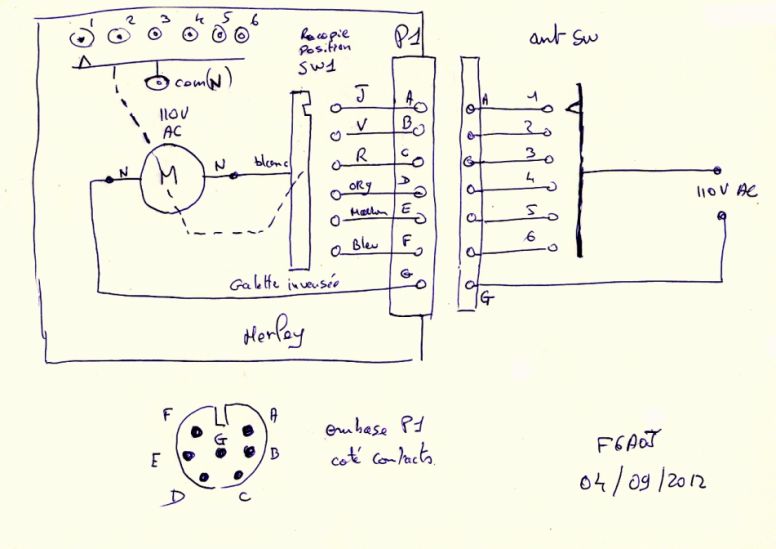 1 2 3 4 5 6
com(N)
110V
AC
M
N
N
blanc
Recopie
Position
SW1
P1
J A
V B
R C
ORG D
Marron E
Bleu F
G
Galette inversée
Herley
ant SW
A 1
2
3
4
5
6
G
110V AC
F A
G
E B
D C
embase P1
coté contacts.
F6AOJ
04/09/2012